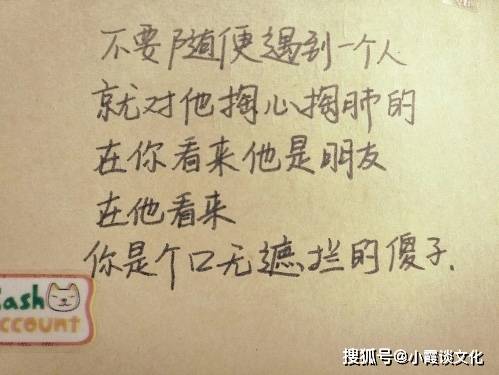 不要随便遇到一个人
就对他掏心掏肺的
在你看来他是朋友
在他看来
你是个口无遮拦的傻子.
Cash
Account
搜狐号@小霞谈文化